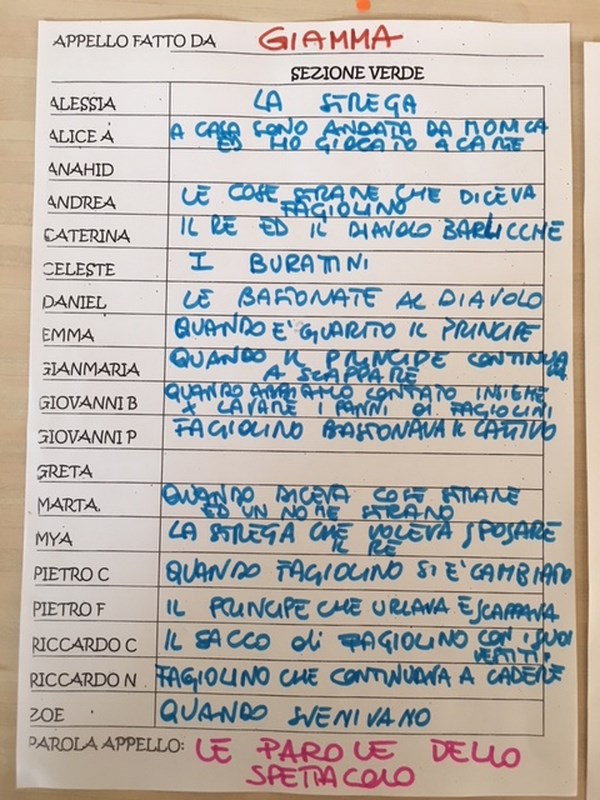 APPELLO FATTO DA GIAMMA
SEZIONE VERDE
ALESSIA LA STREGA
ALICE A A CASA SONO ANDATA DA MONICA
ED HO GIOCATO A CARTE
ANAHID
ANDREA LE COSE STRANE CHE DICEVA
FAGIOLINO
CATERINA IL RE ED IL DIAVOLO BARLICCHE
CELESTE I BURATINI
DANIEL LE BASTONATE AL DIAVOLO
EMMA QUANDO E' GUARITO IL PRINCIPE
GIANMARIA QUANDO IL PRINCIPE CONTINUAVA
A SCAPPARE
GIOVANNI B QUANDO ABBIAMO CONTATO INSIEME
X LAVARE I PANNI DI FAGIOLINI
GIOVANNI P FAGIOLINO BASTONAVA IL CATTIVO
GRETA
MARTA. QUANDO DICEVA COSE STRANE
ED UN NOME STRANO
MYA LA STREGA CHE VOLEVA SPOSARE
IL RE
PIETRO C QUANDO FAGIOLINO SI E' CAMBIATO
PIETRO F IL PRINCIPE CHE URLAVA E SCAPPAVA
RICCARDO C IL SACCO di FAGIOLINO CON I SUOI
VESTITI.
RICCARDO N FAGIOLINO CHE CONTINUAVA A CADERE
ZOE QUANDO SVENIVANO
PAROLA APPELLO: LE PAROLE DELLO
SPETTACOLO